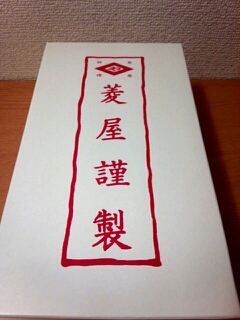 菱屋謹製